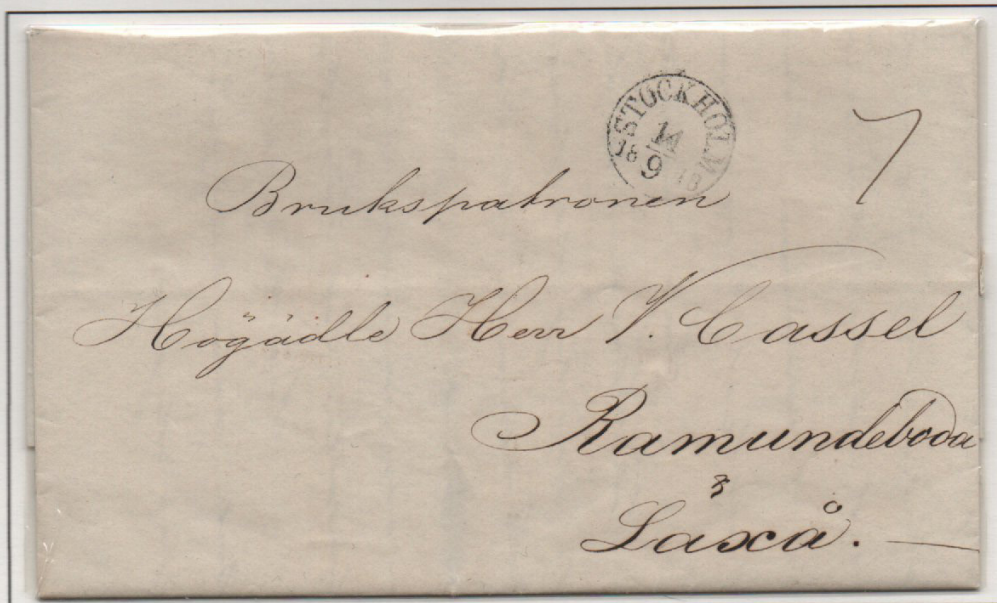 STOCKHOLM
14
18 9 48
7
Brukspatronen
Högädle Herr V. Cassel
Ramundeboda
å
Laxå.